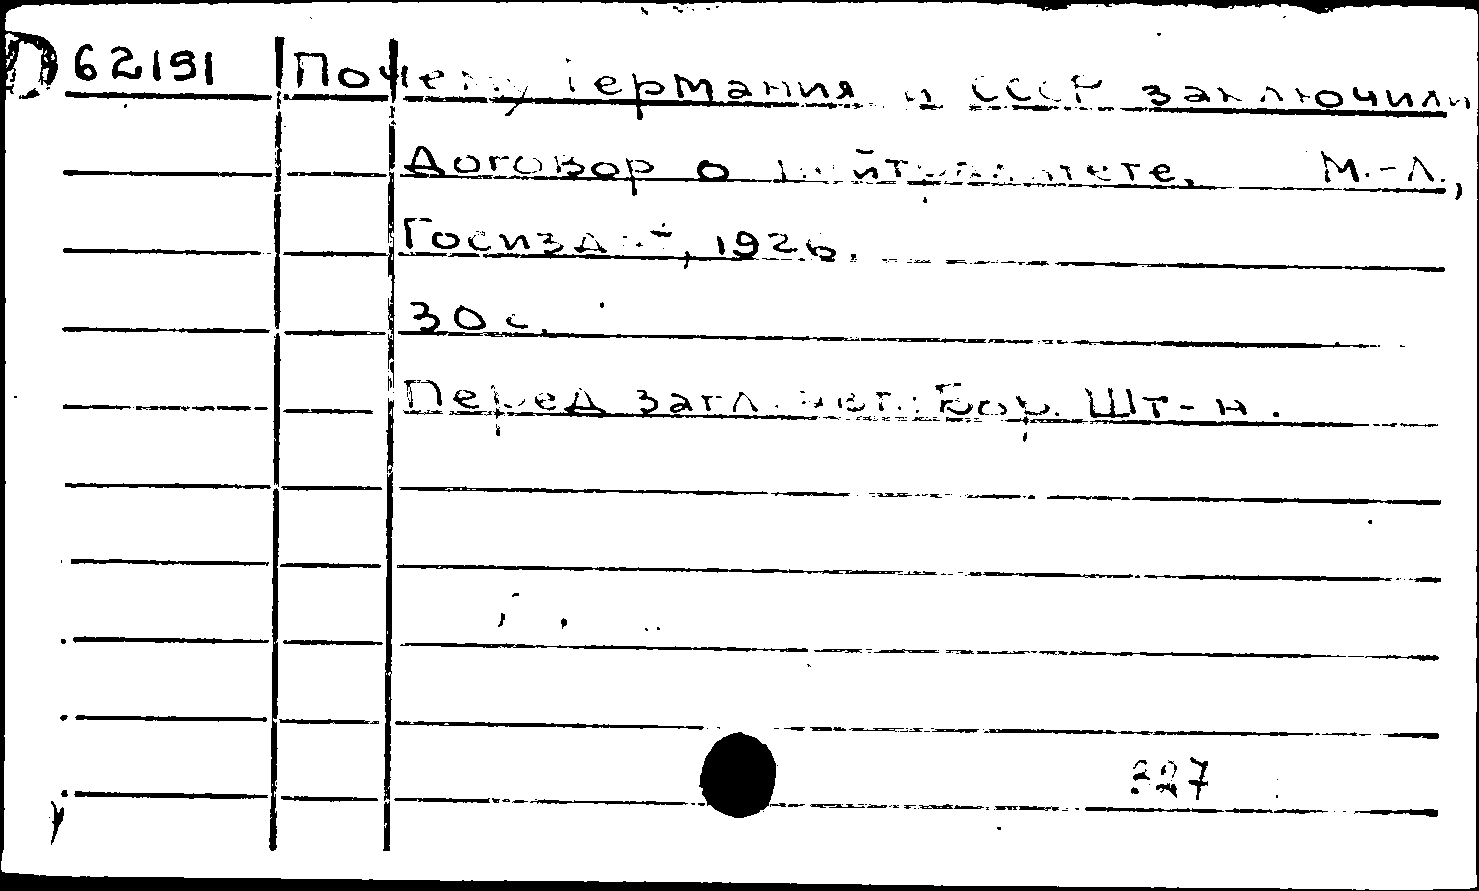 П 62191 Почему Германия и СССР заключили
договор о нейтралитете. М.-Л.,
Госиздат, 1926.
30 с.
Перед загл. авт.: Бор. Шт-н.
327